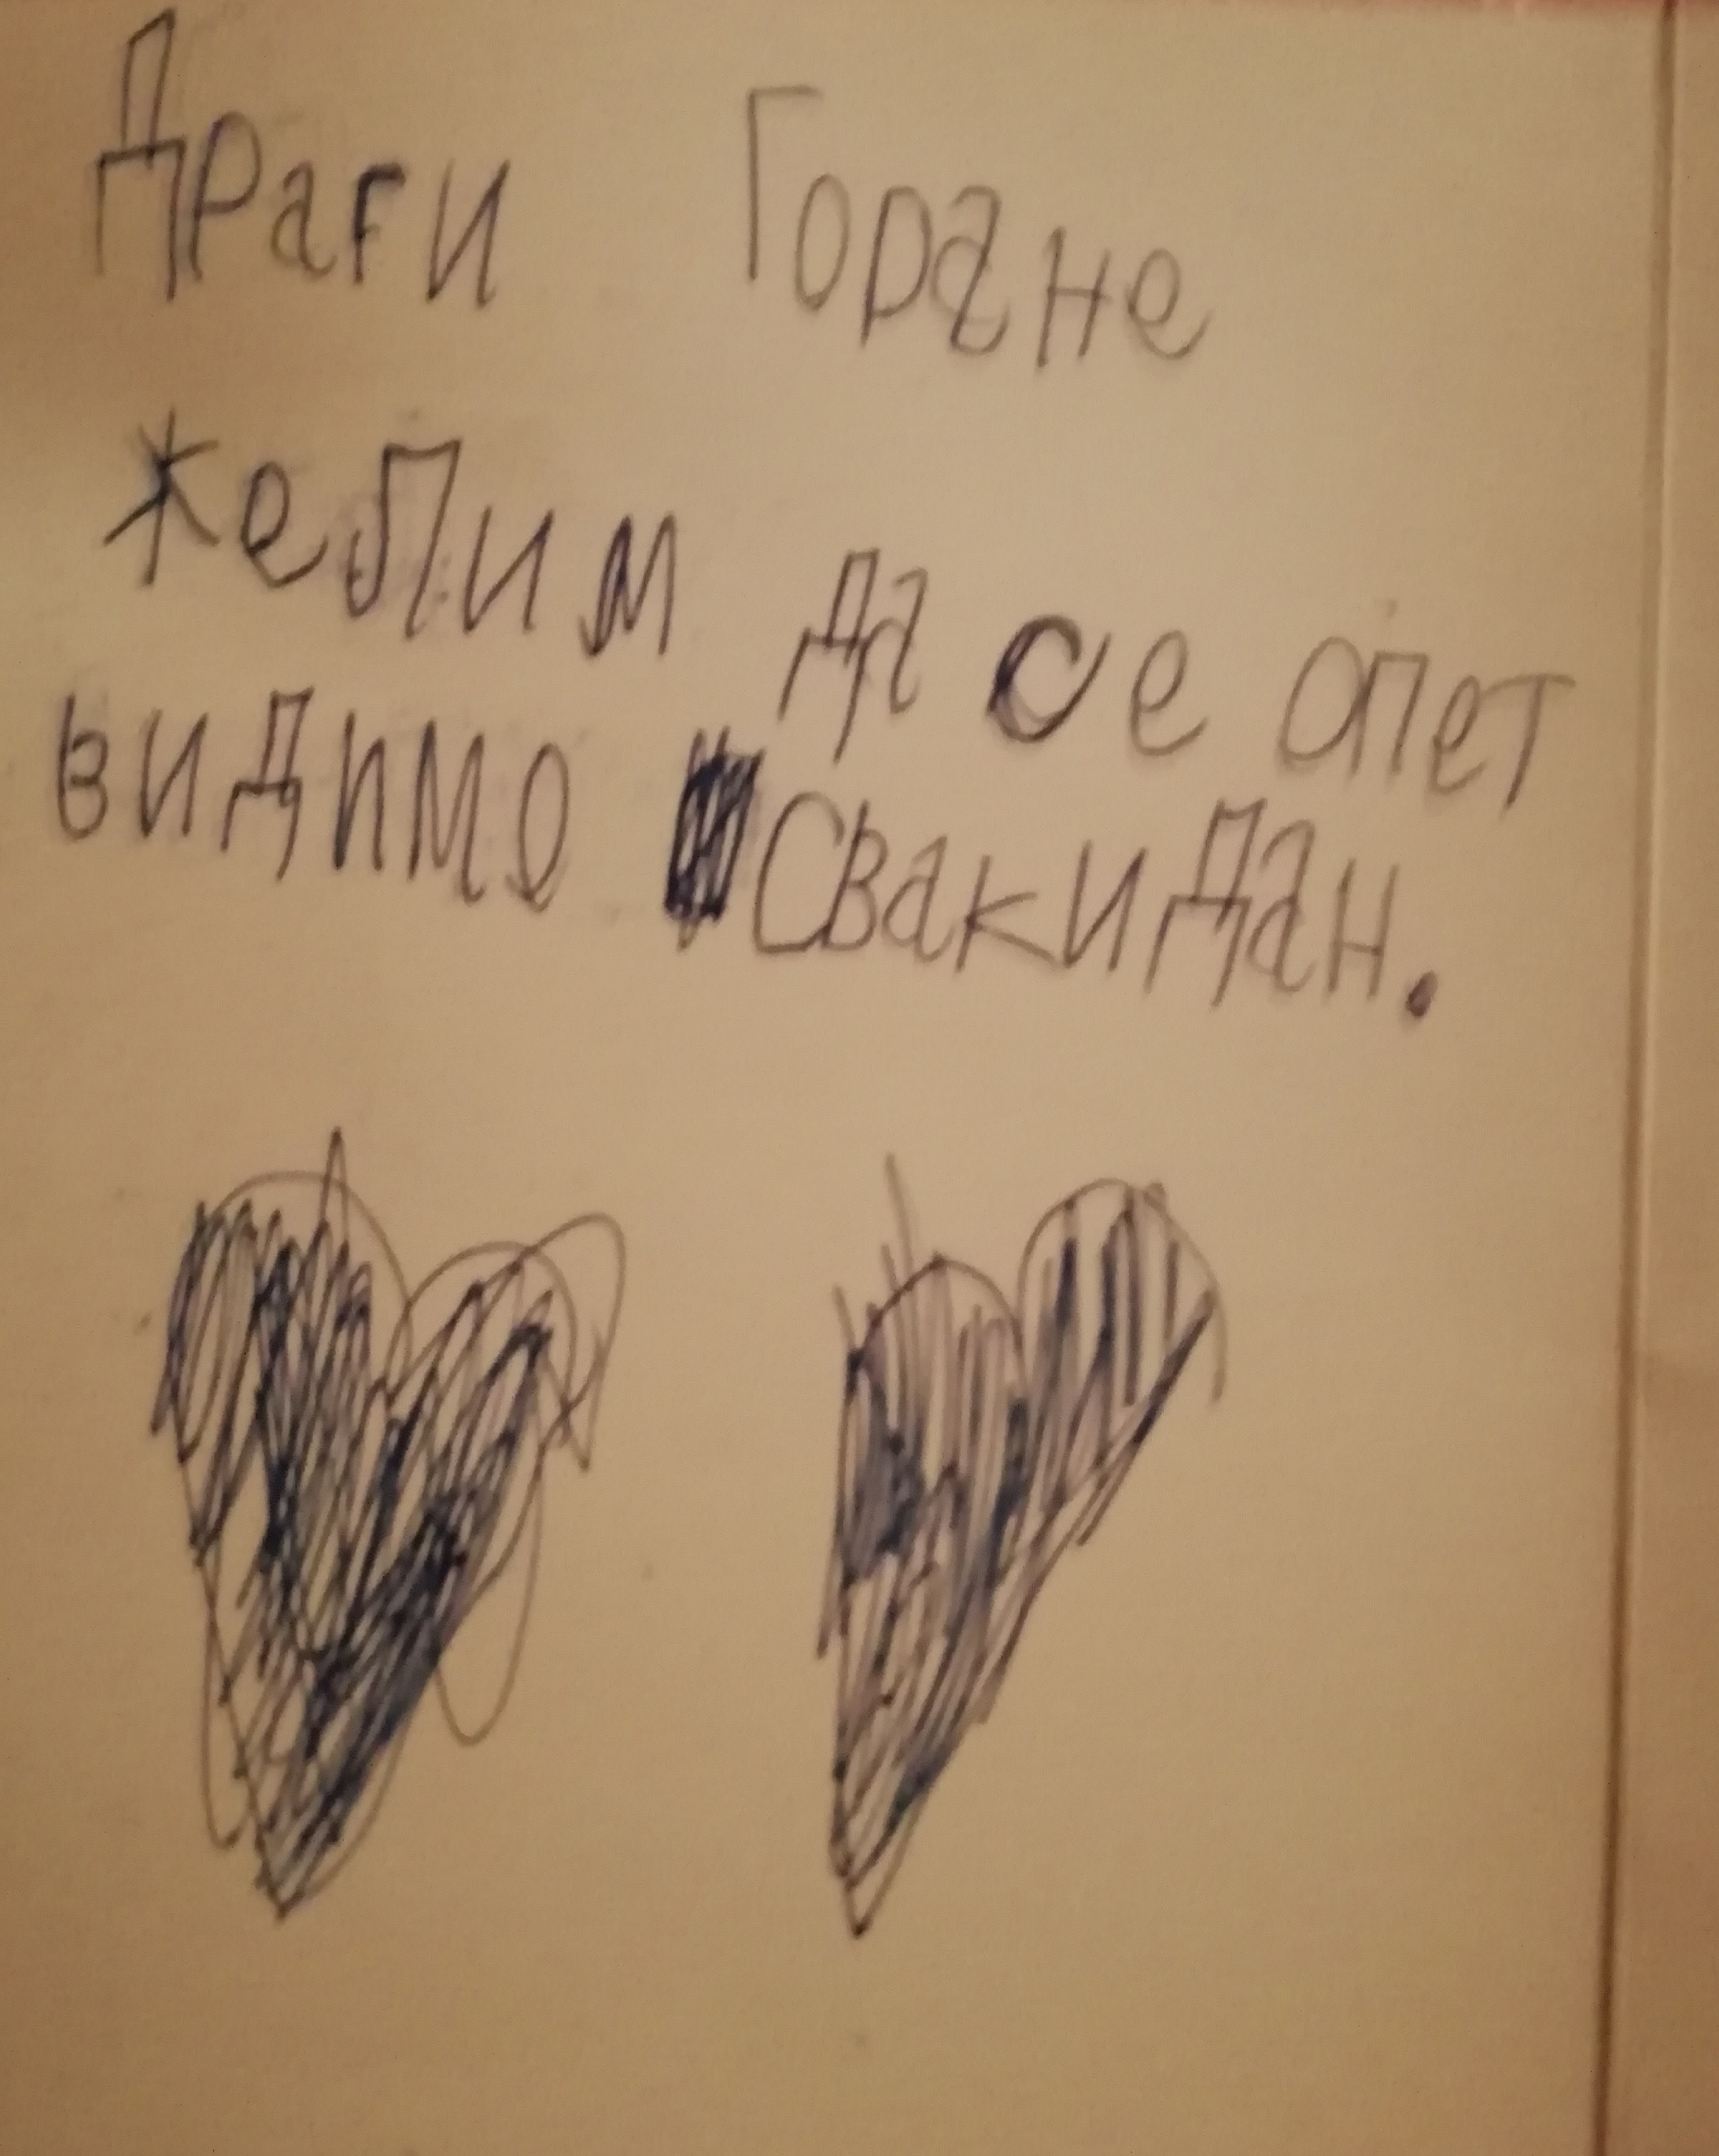 Драги Горане
желим да се опет
видимо Сваки дан.